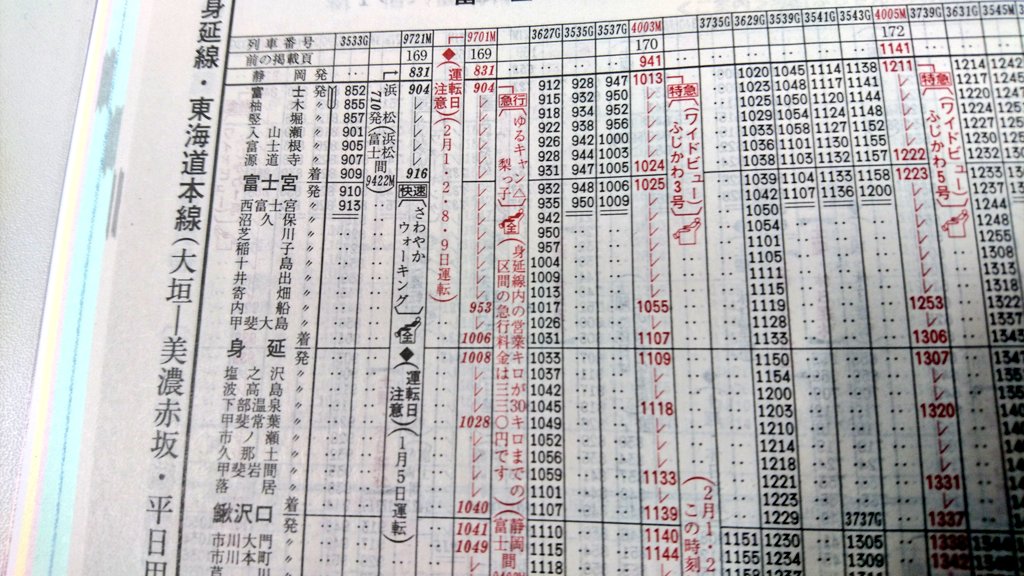 身延線・東海道本線(大垣―美濃赤坂・平日田
列車番号 3533G 9721M 9701M 3627G 3535G 3537G 4003M 3735G 3629G 3539G 3541G 3543G 4005M 3739G 3631G 3545M
前の掲載頁 169 169 170 172
941 1141
静岡発 831 831 1013 1211
富士発 852 904 904 912 928 947 1020 1045 1114 1138 1214 1242
柚木〃 855 915 932 950 1025 1050 1120 1141 1217
竪堀〃 857 918 934 952 1029 1054 1124 1144 1224
入山瀬〃 901 922 938 956 1033 1058 1127 1147 1227
富士根〃 905 926 942 1000 1036 1101 1130 1152 1230
源道寺〃 907 928 944 1003 1038 1103 1132 1155
富士宮着 909 916 931 947 1005 1024 1157 1222 1232
発 910 932 948 1006 1025 1039 1104 1133 1158 1223 1233
西富士宮〃 913 935 950 1009 1042 1107 1136 1200 1237
沼久保〃 942 1050 1244
芝川〃 950 1054 1248
稲子〃 957 1101 1255
十島〃 1004 1105 1308
井出〃 1009 1111 1313
寄畑〃 1013 1115 1318
内船〃 953 1017 1055 1119 1253 1322
甲斐大島〃 1026 1128 1337
身延着 1006 1031 1107 1133 1306
発 1008 1033 1109 1150 1307
塩之沢〃 1037 1154
波高島〃 1042 1200
下部温泉〃 1028 1045 1118 1203 1320
甲斐常葉〃 1049 1210
市ノ瀬〃 1052 1214
久那土〃 1056 1218
甲斐岩間〃 1059 1133 1221 1331
落居〃 1101 1223
鰍沢口着 1040 1107 1139 1229 3737G 1337
発 1041 1110 1140 1151 1230 1305 1338
市川大門〃 1049 1115 1144 1155 1234 1309 1342
市川本町〃 1118 1157
浜松710発(浜松―富士間9422M)
快速
さわやかウォーキング
全
◆(運転日注意)(1月5日運転)
◆(運転日注意)(2月1・2・8・9日運転)
急行
ゆるキャン△梨っ子
全
(身延線内の営業キロが30キロまでの区間の急行料金は三三〇円です)
(静岡―富士間
特急
(ワイドビュー)ふじかわ3号
特急
(ワイドビュー)ふじかわ5号
(2月1・2
この時刻